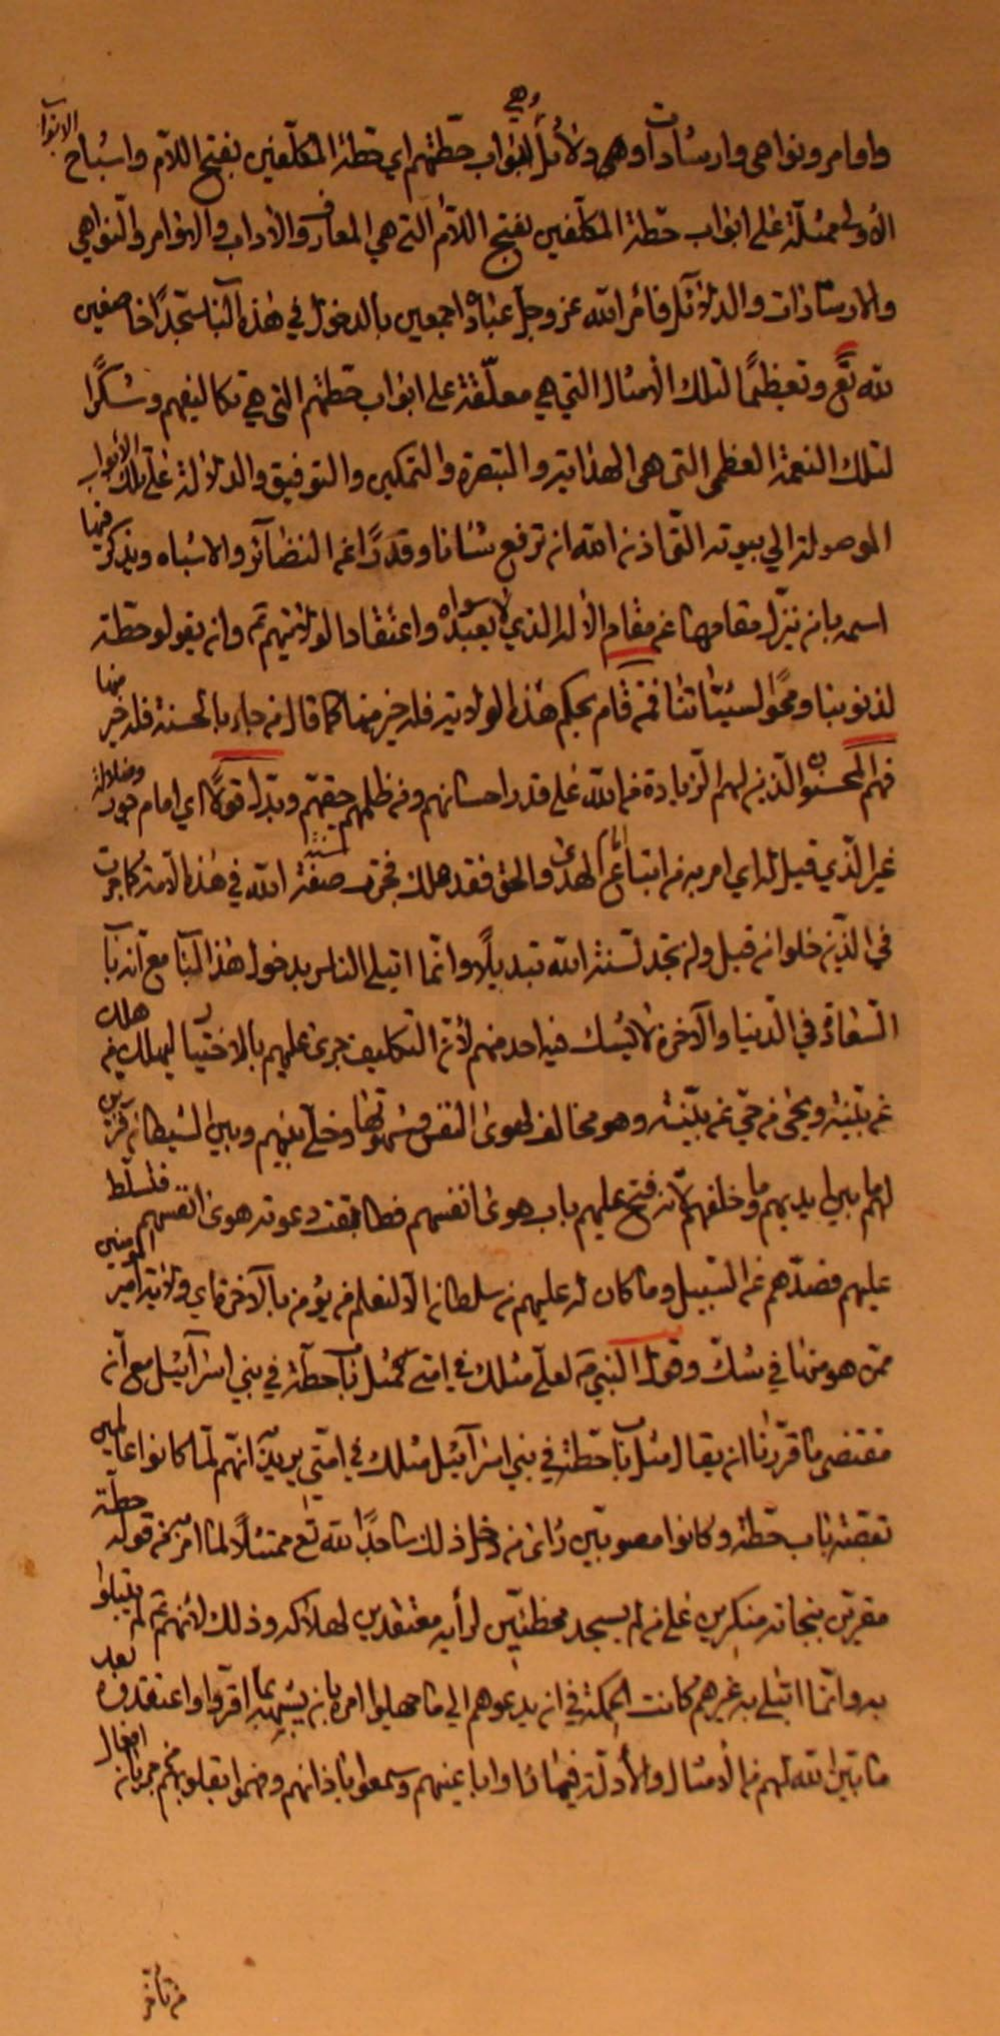 واوامر ونواهي وارشادات وهي دلائل ابواب حطتهم اي حطة المكلفين بفتح اللام واشباح الابواب
الاولى ممثلة على ابواب حطة المكلفين بفتح اللام التي هي المعارف والاداب والاوامر والنواهي
والارشادات والدلائل فامر الله عز وجل عباده اجمعين بالدخول في هذه الباب سجدا خاضعين
لله تع وتعظيما لتلك الامثال التي هي معلقة على ابواب حطتهم التي هي تكاليفهم وشكرا
لتلك النعمة العظمى التي هي الهداية والتبصرة والتمكين والتوفيق والدلالة على تلك الابواب
الموصولة الى بيوته التي اذن الله ان ترفع شانا وقدرا عن النضائر والاشباه ويذكر فيها
اسمه بان ننزل مقامها عن مقام الاله الذي لا يعبد سواه واعتقادا لولايتهم ع وان يقولوا حطة
لذنوبنا ومحو لسيئاتنا فمن قام بحكم هذه الولاية فله خير منها كما قال من جاء بالحسنة فله خير منها
فهم المحسنون الذين لهم الزيادة من الله على قدر احسانهم ومن ظلمهم حقهم وبدل قولا اي امام جور وضلالة
غير الذي قيل له اي امر به من اتباع ائمة الهدى والحق فقد هلك فجرت سنة الله في هذه الامة كما جرت
في الذين خلوا من قبل ولن تجد لسنة الله تبديلا وانما ابتلي الناس بدخول هذا الباب مع انه باب
السعادة في الدنيا والاخرة لا يشك فيه احد منهم لان التكليف جرى عليهم بالاختيار ليهلك من هلك
عن بينة ويحيى من حي عن بينة وهو مخالف لهوى النفس وشهوتها وخلي بينهم وبين الشيطان فزين
لهم ما بين ايديهم وما خلفهم لانه فتح عليهم باب هوى انفسهم فطابقت دعوته هوى انفسهم فتسلط
عليهم فصدهم عن السبيل وما كان له عليهم من سلطان الا لنعلم من يؤمن بالاخرة اي ولاية امير المؤمنين
ممن هو منها في شك وقول النبي ص لعلي مثلك في امتي كمثل باب حطة في بني اسرائيل مع ان
مقتضى ما قررنا ان يقال مثل باب حطة في بني اسرائيل مثلك في امتي يريد انهم لما كانوا عالمين
بقصة باب حطة وكانوا مصوبين راى من دخل ذلك ساجدا لله تع ممتثلا لما امر به من قوله حطة
مقرين بنجاته منكرين على من لم يسجد مخطئين لرأيه معتقدين لهلاكه وذلك لانهم لم يبتلوا
به وانما ابتلي به غيرهم كانت الحكمة في ان يدعوهم الى ما جهلوا امره بان يشبهه بما اقروا واعتقدوه بعد
ما تبين الله لهم من الامثال والادلة فيما راوا باعينهم وسمعوا باذانهم وفهموا بقلوبهم من جريان افعال
من تأخر